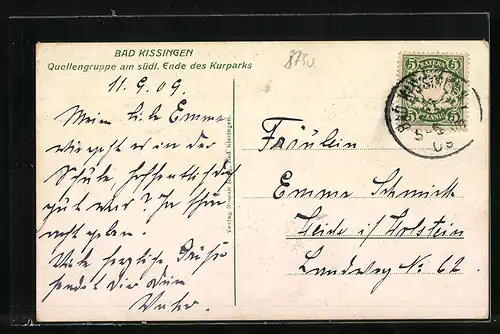 BAD KISSINGEN
Quellengruppe am südl. Ende des Kurparks
8750
11.9.09.
Meine liebe Emma
wie geht es in der
Schule, hoffentlich doch
gut
recht
Viele herzliche Grüße
sendet Dir Dein
Vater.
Verlag Bad Kissingen.
5 BAYERN 5
BAD KISSINGEN
SEP
09
Fräulein
Emma Schmidt
Heide i/Holstein
Landweg No 62.